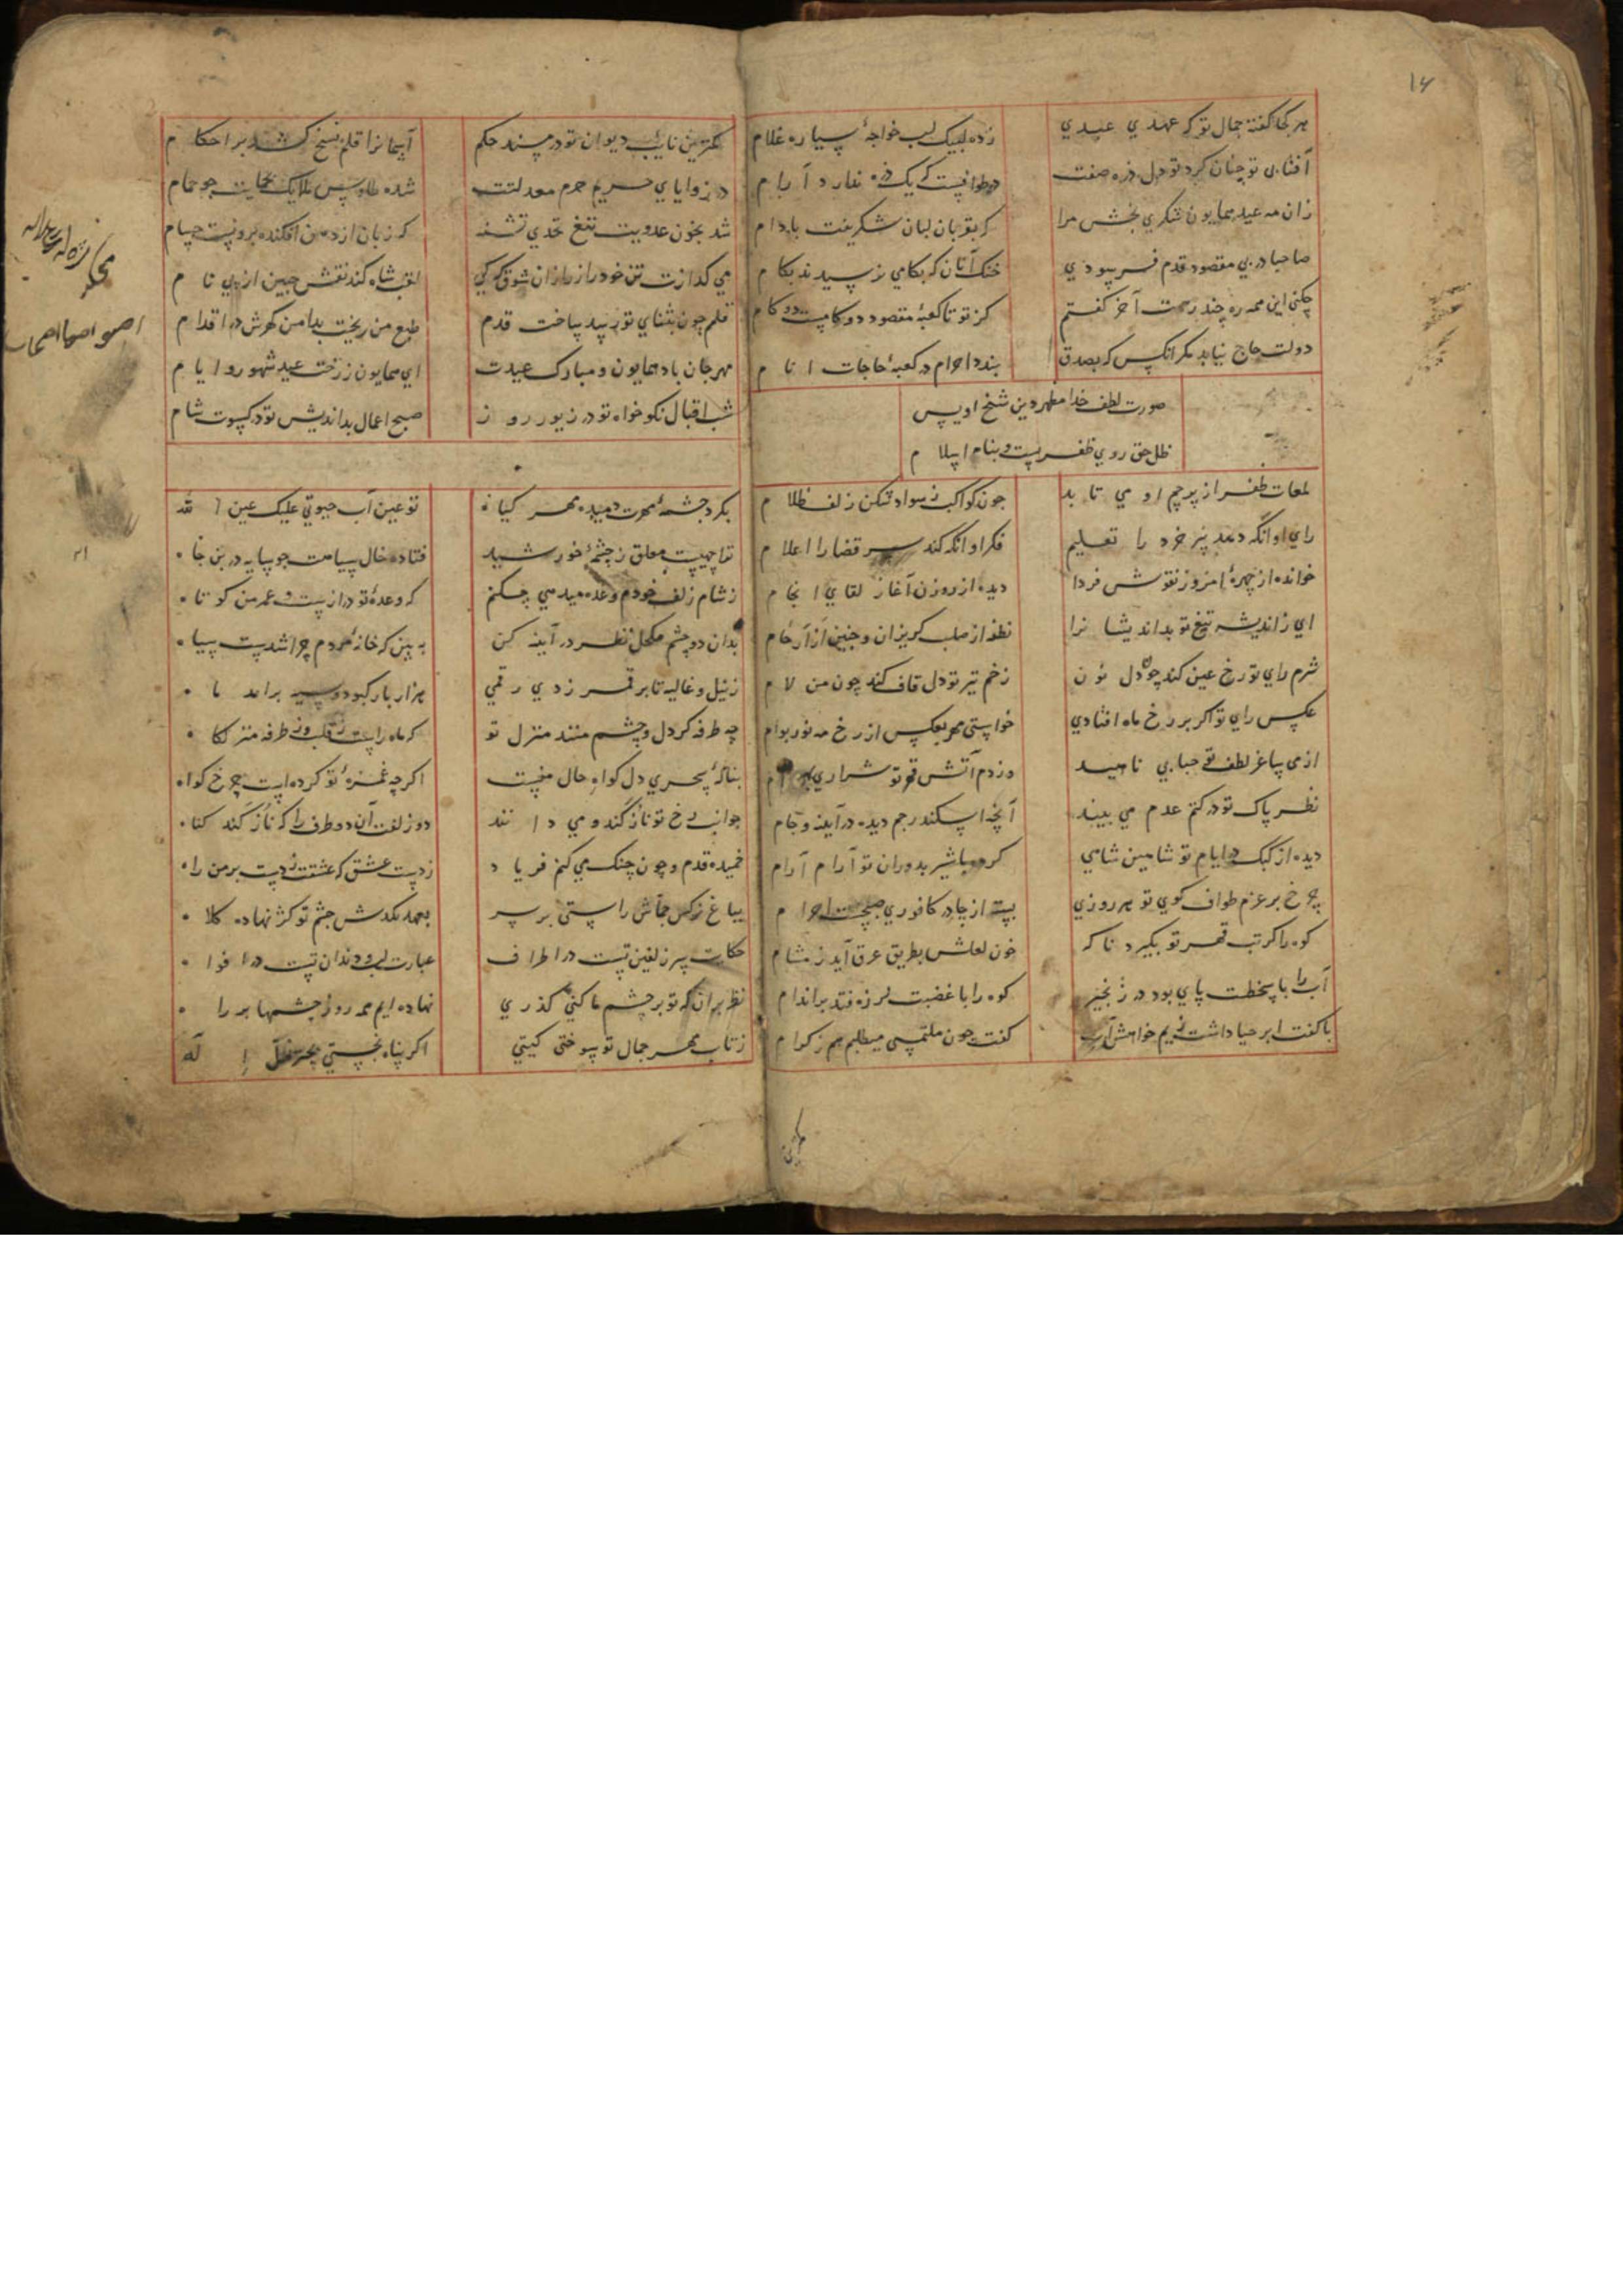 ۱۴
هر کجا گفته جمال تو که عهدی عیدی
زده لبیک لب خواجهٔ سیاره غلام
آفتابی تو چنان کرد تو دل ذره صفت
در طوافست که یک ذره ندارد آرام
زان مه عید همایون شکری بخش مرا
که بقربان لبان شکرینت بادام
صاحبا در پی مقصود قدم فرسودی
خنک آنان که بکامی نرسیدند بکام
چکنی این همه ره چند رهت آخر گفتم
کز تو تا کعبهٔ مقصود دو گامست دو گام
دولت حاج نیابد مگر آنکس که بصدق
بندد احرام در کعبهٔ حاجات انام
صورت لطف خدا مظهر دین شیخ اویس
ظل حق روی ظفر پشت و پناه اسلام
لمعات ظفر از پرچم او می تابد
چون کواکب ز سواد شکن زلف ظلام
رای او آنکه دهد پیر خرد را تعلیم
فکر او آنکه کند سر قضا را اعلام
خوانده از چهرهٔ امروز نقوش فردا
دیده از روزن آغاز لقای انجام
ای ز اندیشه تیغ تو بداندیشانرا
نطفه از صلب گریزان و جنین از ارحام
شرم رای تو رخ عین کند چون دل نون
زخم تیر تو دل قاف کند چون من لام
عکس رای تو اگر بر رخ ماه افتادی
خواستی مهر بعکس از رخ مه نور بوام
از می ساغر لطف تو حبابی ناهید
وز دم آتش قهر تو شراری بهرام
نظر پاک تو در کتم عدم می بیند
آنچه اسکندر و جم دیده در آینه و جام
دیده از کبک در ایام تو شاهین شاهی
کرده با شیر بدوران تو آرام آرام
چرخ بر عزم طواف کوی تو هر روزی
بسته از چادر کافوری صبحت احرام
کوه را گر تب قهر تو بگیرد ناگه
خون لعلش بطریق عرق آید ز مشام
آب را با سخطت پای بود در زنجیر
کوه را با غضبت لرزه فتد بر اندام
با کفت ابر حیا داشت ندیم خواهش آب
گفت چون ملتمسی میطلبم هم ز کرام
کمترین نایب دیوان تو در مسند حکم
آسمانرا قلم نسخ کشد بر احکام
در زوایای حریم حرم معدلتت
شده طاوس ملایک بحمایت چو حمام
شد بخون عدویت تیغ بحدی تشنه
که زبان از دهن افکنده برونست حسام
می گدازت تن خود را ز زر از آن شوق که کی
لقب شاه کند نقش جبین از پی نام
قلم چون بثنای تو رسید ساخت قدم
طبع من ریخت بدامن گهرش در اقدام
مهرجان باد همایون و مبارک عیدت
ای همایون ز رخت عید شهور و ایام
شب اقبال نکوخواه تو در زیور روز
صبح اعمال بداندیش تو در کسوت شام
بگرد چشمهٔ مهرت دمیده مهر گیاه
تو عین آب حیوتی علیک عین الله
تو را چهیست معلق ز چشمهٔ خورشید
فتاده خال سیاهت چو سایه در بن چاه
ز شام زلف خودم وعده میدهی چکنم
که وعدهٔ تو درازست و عمر من کوتاه
بدان دو چشم مکحل نظر در آینه کن
به بین که خانهٔ مردم چرا شدست سیاه
ز نیل و غالیه تا بر قمر زدی رقمی
هزار بار کبود و سیه برامد ماه
چه طرفه گر دل و چشم منند منزل تو
که ماه راست ز قلب و ز طرفه منزلگاه
بناله سحری دل گواه حال منست
اگر چه غمزهٔ تو کرده است جرح گواه
جوانب رخ تو ناز کند و می دانند
دو زلفت آن دو طرف را که ناز کند گناه
خمیده قدم و چون چنگ می کنم فریاد
ز دست عشق که عشقت زدست بر من راه
بباغ نرگس جماش راستی بر سر
بعهد نکدش چشم تو کژ نهاده کلاه
حکایت سر زلفین تست در اطراف
عبارت لب و دندان تست در افواه
نظر بران که تو بر چشم ما کنی گذری
نهاده ایم همه روز چشمها بر راه
ز تاب مهر جمال تو سوختی گیتی
اگر پناه نجستی بچتر ظل اله